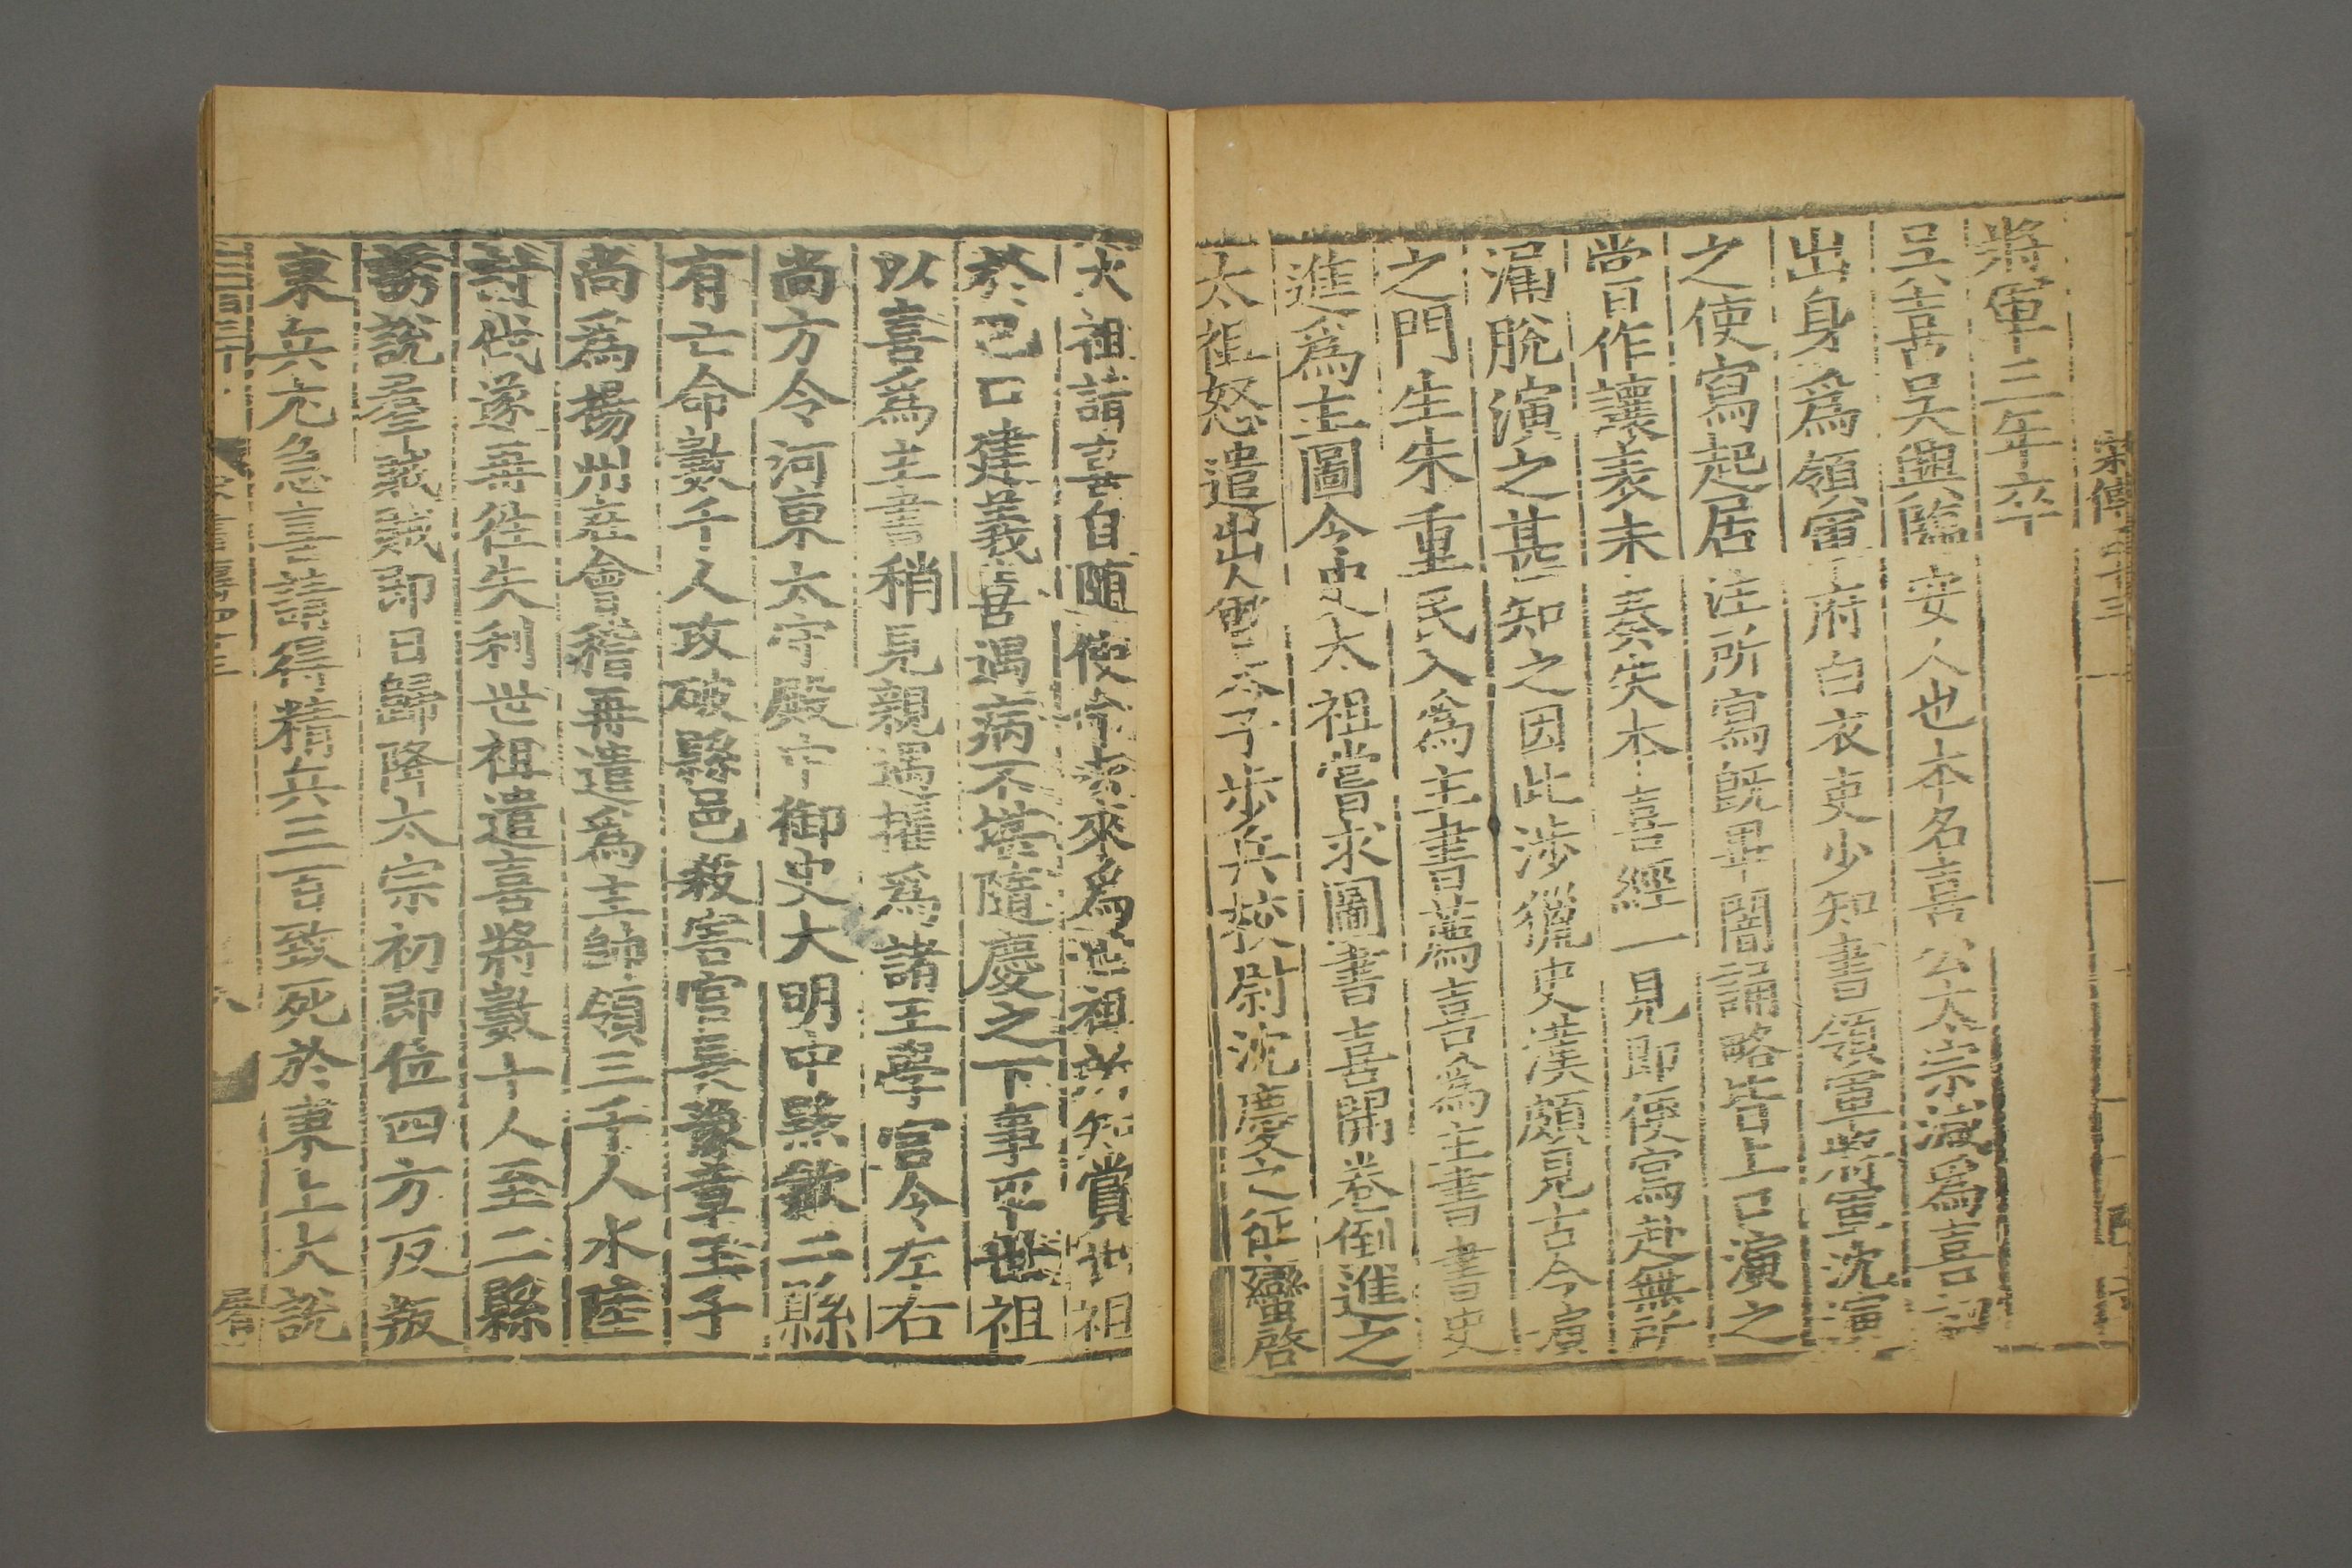 將軍三年卒
吳喜吳興臨安人也本名喜公太宗減爲喜初
出身爲領軍府白衣吏少知書領軍將軍沈演
之使寫起居注所寫既畢闇誦略皆上口演之
嘗作讓表未奏失本喜經一見即便寫赴無所
漏脫演之甚知之因此涉獵史漢頗見古今演
之門生朱重民入爲主書薦喜爲主書書史
進爲主圖令史太祖嘗求圖書喜開卷倒進之
太祖怒遣出人會太子步兵校尉沈慶之征蠻啓
太祖請喜自隨使命來爲世祖所知賞世祖
於巴口建義喜遇病不堪隨慶之下事平世祖
以喜爲主書稍見親遇擢爲諸王學官令左右
尚方令河東太守殿中御史大明中黟歙二縣
有亡命數千人攻破縣邑殺害官長豫章王子
尚爲揚州在會稽再遣爲主帥領三千人水陸
討伐遂再往失利世祖遣喜將數十人至二縣
誘說羣賊賊即日歸降太宗初即位四方反叛
東兵尤急喜請得精兵三百致死於東上大說